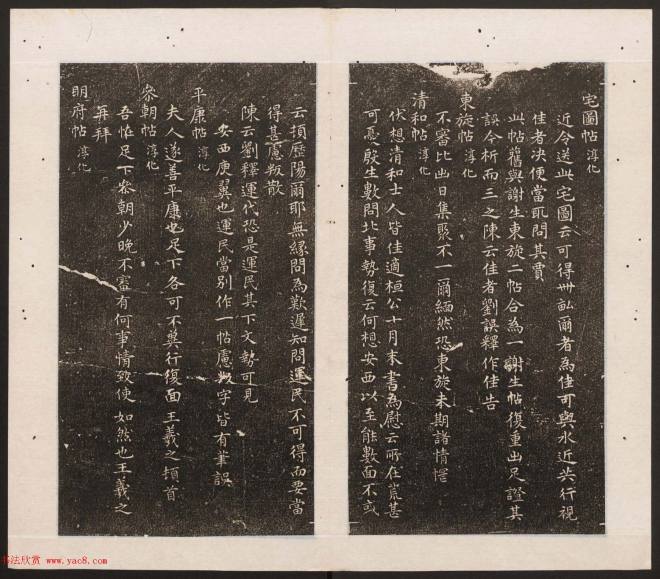 宅圖帖 淳化
近令送此宅圖云可得卅畝爾者為佳可與水近共行視
佳者決便當取問其賈
此帖舊與謝生東旋二帖合為一謝生帖復重出足證其
誤今析而三之陳云佳者劉誤釋作佳告
東旋帖 淳化
不審比出日集聚不一爾緬然恐東旋未期諸情罔
清和帖 淳化
伏想清和士人皆佳適桓公十月末書為慰云所在荒甚
可憂殷生數問北事勢復云何想安西以至能數面不或
云頓歷陽爾耶無緣問為歎遲知問運民不可得而要當
得甚慮叛散
陳云劉釋運代恐是運民其下文勢可見
安西庾翼也運民當別作一帖慮叛字皆有筆誤
平康帖 淳化
夫人遂善平康也足下各可不與行復面王羲之頓首
參朝帖 淳化
吾怪足下參朝少晚不審有何事情致使如然也王羲之
再拜
明府帖 淳化
书法欣赏 www.yac8.com